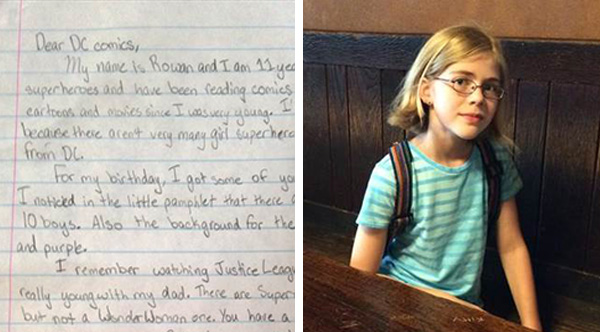 Dear DC comics,
My name is Rowan and I am 11
superheroes and have been reading comics
cartoons and movies since I was very young.
because there arent very many girl
from DC.
For my birthday, I got some of
I noticed in the little pamphlet that there
10 boys. Also the background for the
and purple.
I remember watching Justice
really young with my dad. There are
but not a Wonder Woman one. You have a